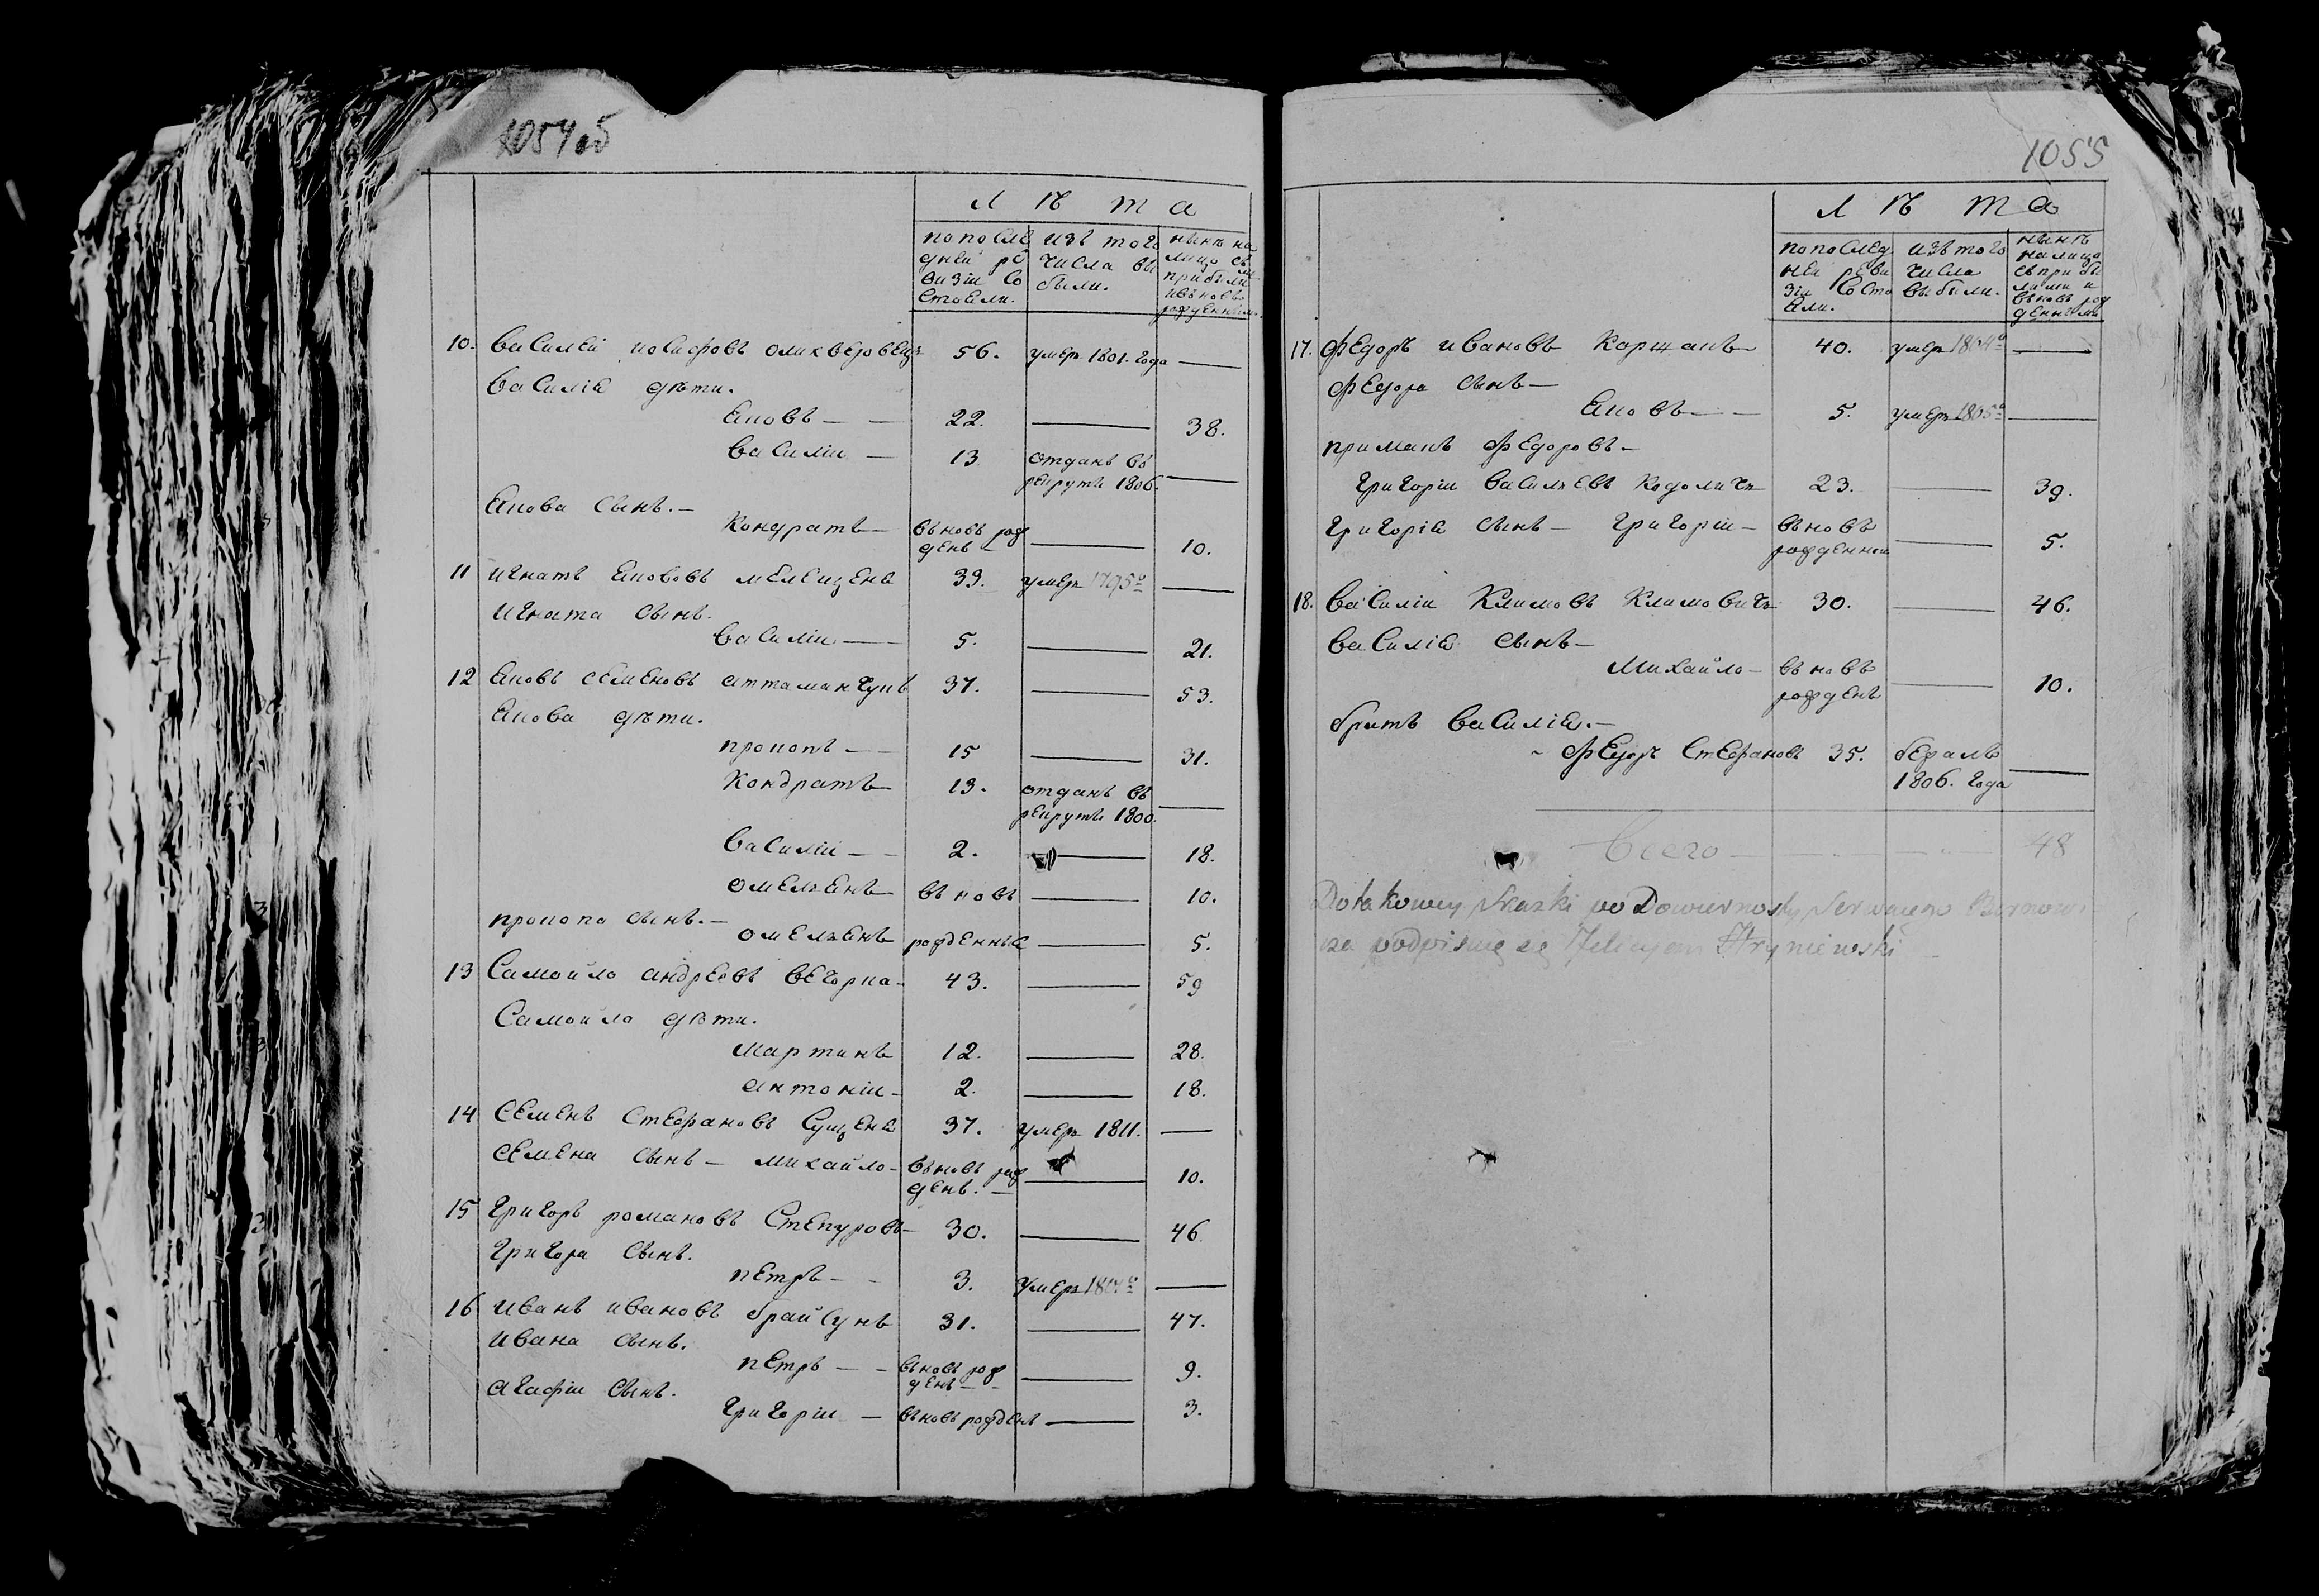 1054 об
Л Ѣ Т А
по после
дней ре
визіи со
стояли.
изъ того
числа вы
были.
нынѣ на
лицо съ
прибылы
ми
и вновь
рожденными
10. Василей иосифовъ 56. умеръ 1801. года —
Василія дѣти.
Яковъ — — 22. — 38.
Василій — 13 отданъ въ
рекруты 1806. —
Якова сынъ. —
Кондратъ — вьновь рож
денъ — — 10.
11 Игнатъ Якововъ мелещеня 33. умеръ 1795го —
Игната сынъ.
Василій — 5. — 21.
12 Яковъ семеновъ аттаманчукъ 37. — 53.
Якова дѣти.
прокопъ — — 15 — 31.
Кондратъ — 13. отданъ въ
рекруты 1800. —
Василій — — 2. — 18.
омельянъ — вьновь — 10.
прокопа сынъ. —
омельянъ рожденные — 5.
13 Самойло андреевъ вечорка — 43. — 59
Самойла дѣти.
мартинъ 12. — 28.
антоній — 2. — 18.
14 Семенъ Стефановъ Сущеня 37. умеръ 1811. —
семена сынъ — михайло — вьновь рож
денъ. — — 10.
15 Григоръ романовъ 30. — 46
Григора сынъ.
петръ — — 3. умеръ —
16 иванъ ивановъ брайсунъ 31. — 47.
ивана сынъ.
петръ — — вьновь рож
денъ — — — 9.
агафіи сынъ.
Григорій — вьновь рожденъ — 3.
1055
Л Ѣ Т А
по послед
ней реви
зіи состо
яли.
изъ того
числа
выбыли.
нынѣ
на лицо
съ прибы
лыми и
вьновь рож
денными
17. Федоръ ивановъ Коржанъ 40. умеръ 1804го —
Федора сынъ —
Яковъ — — 5. умеръ —
приманъ Федоровъ —
Григорій Васильевъ Кодоличъ 23. — 39.
Григорія сынъ — Григорій — вьновь
рожденной — 5.
18. Василій Климовъ Климовичъ 30. — 46.
Василія сынъ —
Михайло — вьновь
рожденъ — 10.
братъ Василія. —
Федоръ Стефановъ 35. бежалъ
1806. года —
Всего — 48
Do takowey skazki po Dowiernosty
za podpisuię się Felicyan Hryniewski